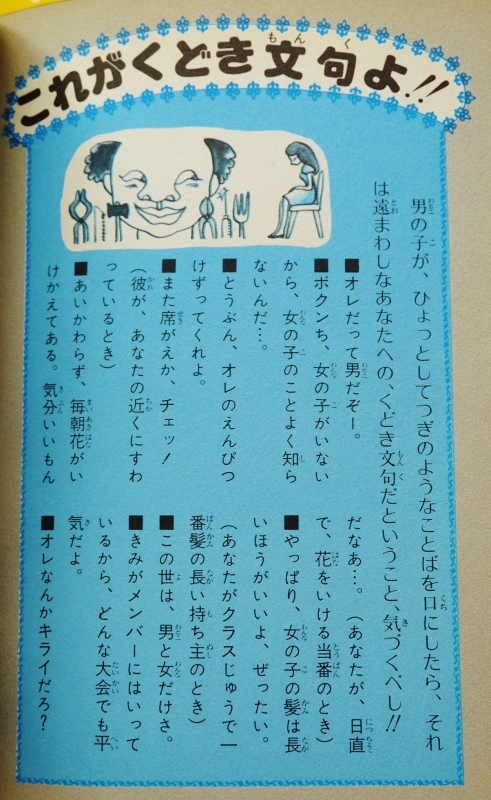 これがくどき文句よ!!
男の子が、ひょっとしてつぎのようなことばを口にしたら、それ
は遠まわしなあなたへの、くどき文句だということ、気づくべし!!
■オレだって男だぞー。
■ボクんち、女の子がいない
から、女の子のことよく知ら
ないんだ…。
■とうぶん、オレのえんぴつ
けずってくれよ。
■また席がえか、チェッ!
(彼が、あなたの近くにすわ
っているとき)
■あいかわらず、毎朝花がい
けかえてある。気分いいもん
だなあ…。(あなたが、日直
で、花をいける当番のとき)
■やっぱり、女の子の髪は長
いほうがいいよ、ぜったい。
(あなたがクラスじゅうで一
番髪の長い持ち主のとき)
■この世は、男と女だけさ。
■きみがメンバーにはいって
いるから、どんな大会でも平
気だよ。
■オレなんかキライだろ?